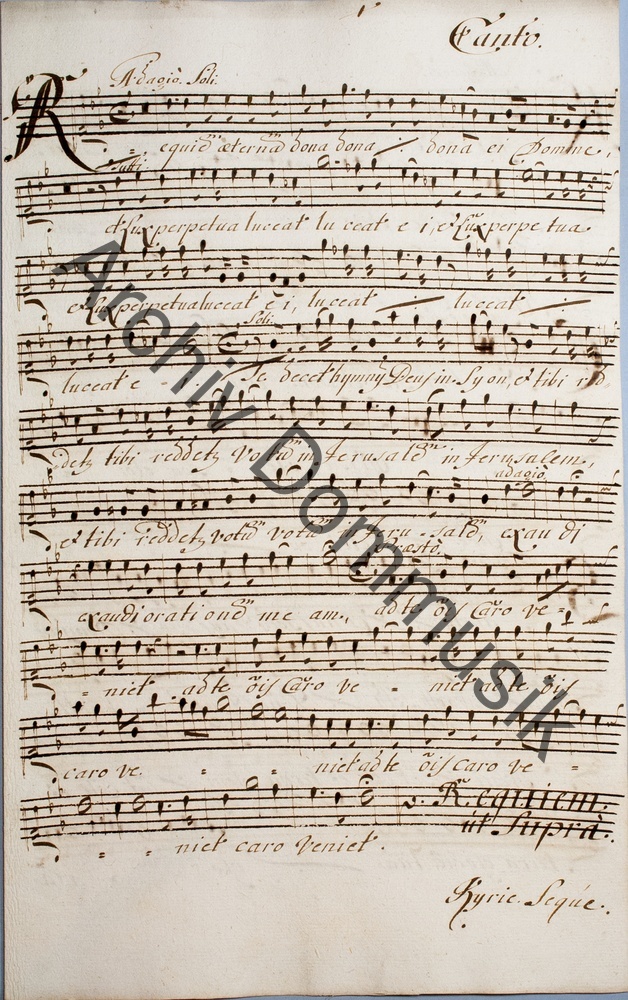 Canto.
Adagio. Soli.
Requiē æternā dona dona dona ei Domine,
Tutti
et Lux perpetua luceat lu ceat e i, et Lux perpe tua
et Lux perpetua luceat e i, luceat luceat
Soli
luceat e - i Te decet hymnus Deus in Syon, et tibi red
detz tibi reddetz votū in Jerusalē in Jerusalem,
adagio,
et tibi reddetz votū votū Jeru - salē, exau di
exaudi orationē me am, ad te ōis Caro ve -
- niet ad te ōis Caro ve - niet ad te ōis
caro ve - - niet ad te ōis caro ve -
Requiem:
ut Supra.
- - niet caro veniet.
Kyrie. Seque.
Archiv Dommusik